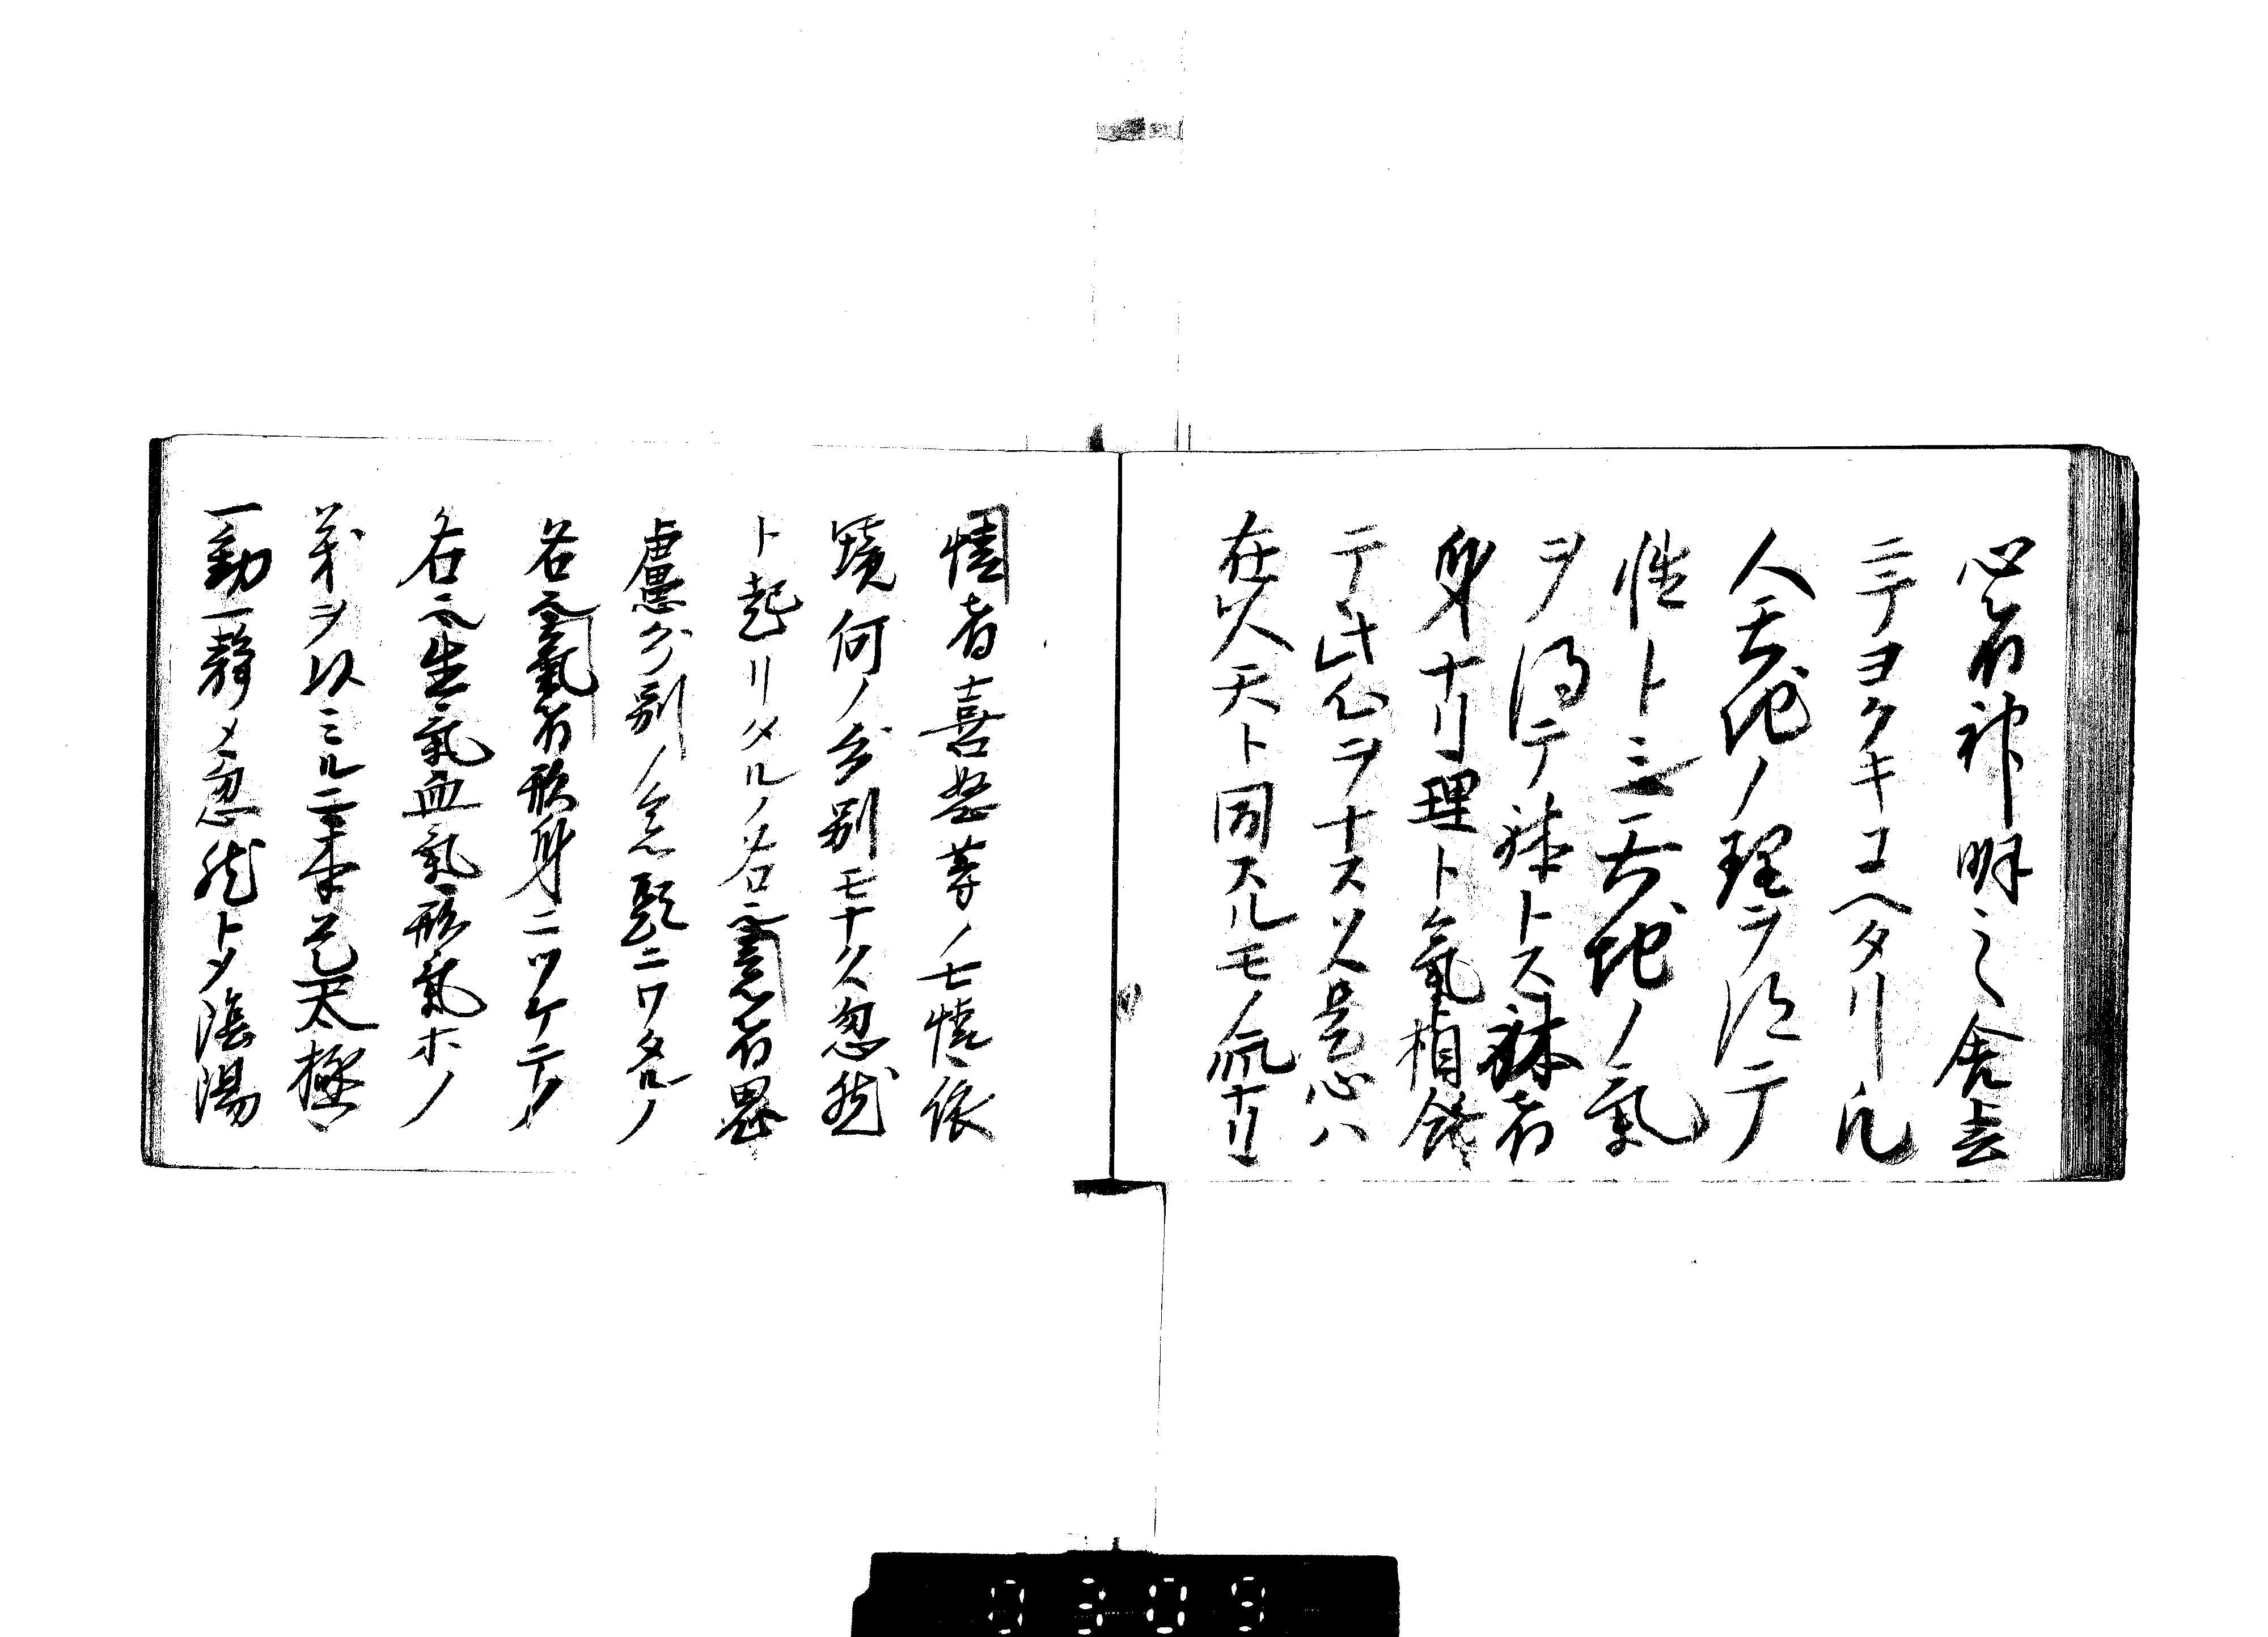 心者神明之舎云
ニテヨクキコヘタリ凡
人天地ノ理ヲ得テ
性トシ天地ノ氣
ヲ得テ躰トス躰者
身ナリ理ト氣相
テ此心ヲナス又是心ハ
在人天ト同スルモノ
情者喜怒等ノ七情依
境何ノ分別モナク忽然
ト起リタルノ名意者思
慮分別ノ念慮ニワタルノ
名氣者形身ニツケテノ
名云生氣血氣形氣ホノ
ヲ以ミルニ本是太極
一動一静メ忽然トメ陰陽
0309